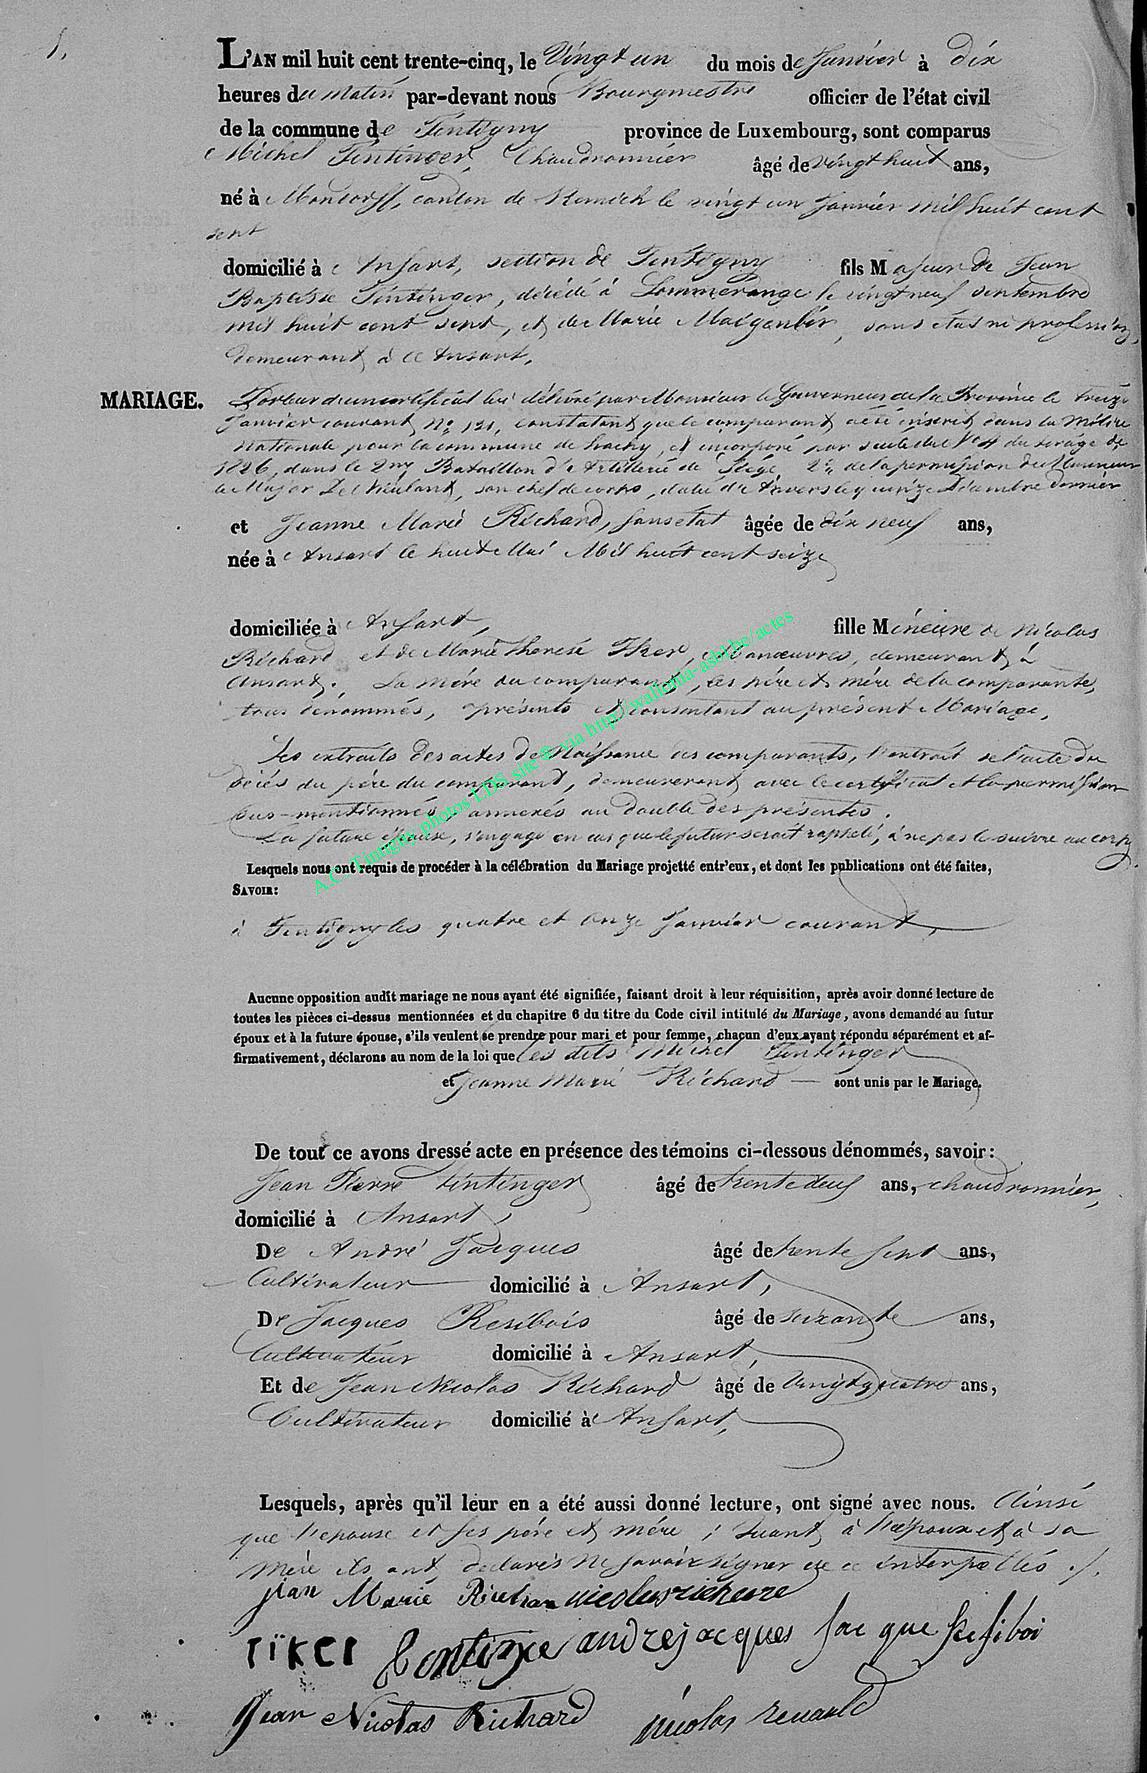 1.
L'AN mil huit cent trente-cinq, le Vingt un du mois de Janvier à dix
heures du matin par-devant nous Bourgmestre officier de l'état civil
de la commune de Tintigny province de Luxembourg, sont comparus
Michel Tintinger, Chaudronnier âgé de vingt huit ans,
né à Mondorff, canton de Remich le vingt un Janvier mil huit cent
sept
domicilié à Ansart, section de Tintigny fils Majeur de Jean
Baptiste Tintinger, décédé à Lommerange le vingt neuf septembre
mil huit cent sept, et de Marie, sans état ni profession,
demeurant à Ansart.
MARIAGE.
Porteur d'un certificat lui délivré par Monsieur le Gouverneur de la Province le treize
Janvier courant, No 121, constatant que le comparant a été inscrit dans la Milice
Nationale pour la commune de hachy, et incorporé par suite du No 4 du tirage de
1826, dans le 2me Bataillon d'Artillerie de Liège, 2° de la permission de Monsieur
le Major, son chef de corps, daté d'Anvers le quinze Décembre dernier
et Jeanne Marie Richard, sans état âgée de dix neuf ans,
née à Ansart le huit Mai Mil huit cent seize
domiciliée à Ansart, fille Mineure de Nicolas
Richard et de Marie Therese, Manœuvres, demeurant à
Ansart; La mère du comparant, les père et mère de la comparante,
tous dénommés, présents et consentant au présent Mariage,
Les extraits des actes de Naissance des comparants, l'extrait de l'acte de
décès du père du comparant, demeureront, avec le certificat et la permission
sus-mentionnés, annexés au double des présentes.
La future épouse, s'engage en cas que le futur serait rappelé, à ne pas le suivre au corps
Lesquels nous ont requis de procéder à la célébration du Mariage projetté entr'eux, et dont les publications ont été faites,
SAVOIR:
à Tintigny les quatre et onze Janvier courant,
Aucune opposition audit mariage ne nous ayant été signifiée, faisant droit à leur réquisition, après avoir donné lecture de
toutes les pièces ci-dessus mentionnées et du chapitre 6 du titre du Code civil intitulé du Mariage, avons demandé au futur
époux et à la future épouse, s'ils veulent se prendre pour mari et pour femme, chacun d'eux ayant répondu séparément et af-
firmativement, déclarons au nom de la loi que les dits Michel Tintinger
et Jeanne Marie Richard — sont unis par le Mariage.
De tout ce avons dressé acte en présence des témoins ci-dessous dénommés, savoir:
Jean Pierre Tintinger âgé de trente deux ans, chaudronnier,
domicilié à Ansart,
De André Jacques âgé de trente sept ans,
Cultivateur domicilié à Ansart,
De Jacques Resibois âgé de soixante ans,
Cultivateur domicilié à Ansart,
Et de Jean Nicolas Richard âgé de vingt quatre ans,
Cultivateur domicilié à Ansart,
Lesquels, après qu'il leur en a été aussi donné lecture, ont signé avec nous. Ainsi
que l'épouse et ses père et mère; Quant à l'époux et à sa
mère ils ont déclarés ne savoir signer de ce interpellés ./.
jean Marie Richar nicolas richare
andrejacques Jacque
Jean Nicolas Richard nicolas renauld
A.C. Tintigny photos LDS site @ via http://wallonia-asbl.be/actes